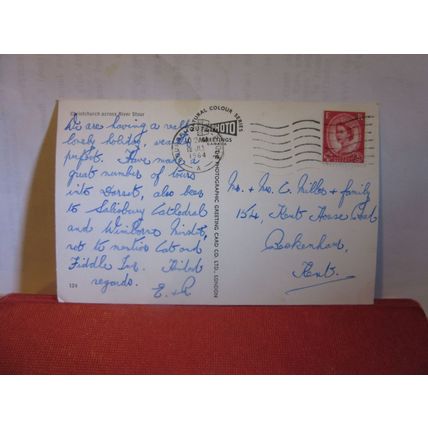 Christchurch across River Stour
We are having a really
lovely holiday, weather
perfect. Have made a
great number of tours
into Dorset, also been
to Salisbury Cathedral
and Wimborne Minster,
not to mention Cat and
Fiddle Inn. Kindest
regards.
E. & R
131
NATURAL COLOUR SERIES
PHOTO
GREETINGS
PHOTOGRAPHIC GREETING CARD CO. LTD., LONDON
1964
A
Mr. & Mrs. C. Miller & family
154, Kent House Road
Beckenham,
Kent.